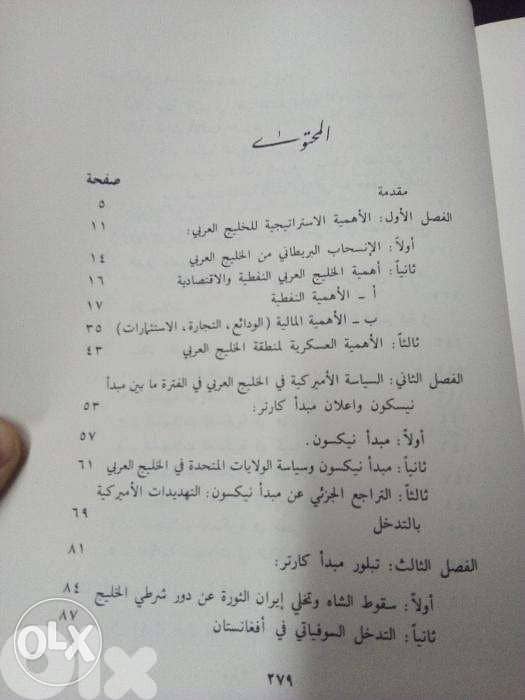 المحتوى
صفحة
مقدمة ٥
الفصل الأول: الأهمية الاستراتيجية للخليج العربي: ١١
أولاً: الإنسحاب البريطاني من الخليج العربي ١٤
ثانياً: أهمية الخليج العربي النفطية والاقتصادية ١٦
أ ـ الأهمية النفطية ١٧
ب ـ الأهمية المالية (الودائع، التجارة، الاستثمارات) ٣٥
ثالثاً: الأهمية العسكرية لمنطقة الخليج العربي ٤٣
الفصل الثاني: السياسة الأميركية في الخليج العربي في الفترة ما بين مبدأ
نيسكون واعلان مبدأ كارتر: ٥٣
أولاً: مبدأ نيكسون. ٥٧
ثانياً: مبدأ نيكسون وسياسة الولايات المتحدة في الخليج العربي ٦١
ثالثاً: التراجع الجزئي عن مبدأ نيكسون: التهديدات الأميركية
بالتدخل ٦٩
الفصل الثالث: تبلور مبدأ كارتر: ٨١
أولاً: سقوط الشاه وتخلي إيران الثورة عن دور شرطي الخليج ٨٤
ثانياً: التدخل السوفياتي في أفغانستان ٨٧
٢٧٩
OLX
OLX